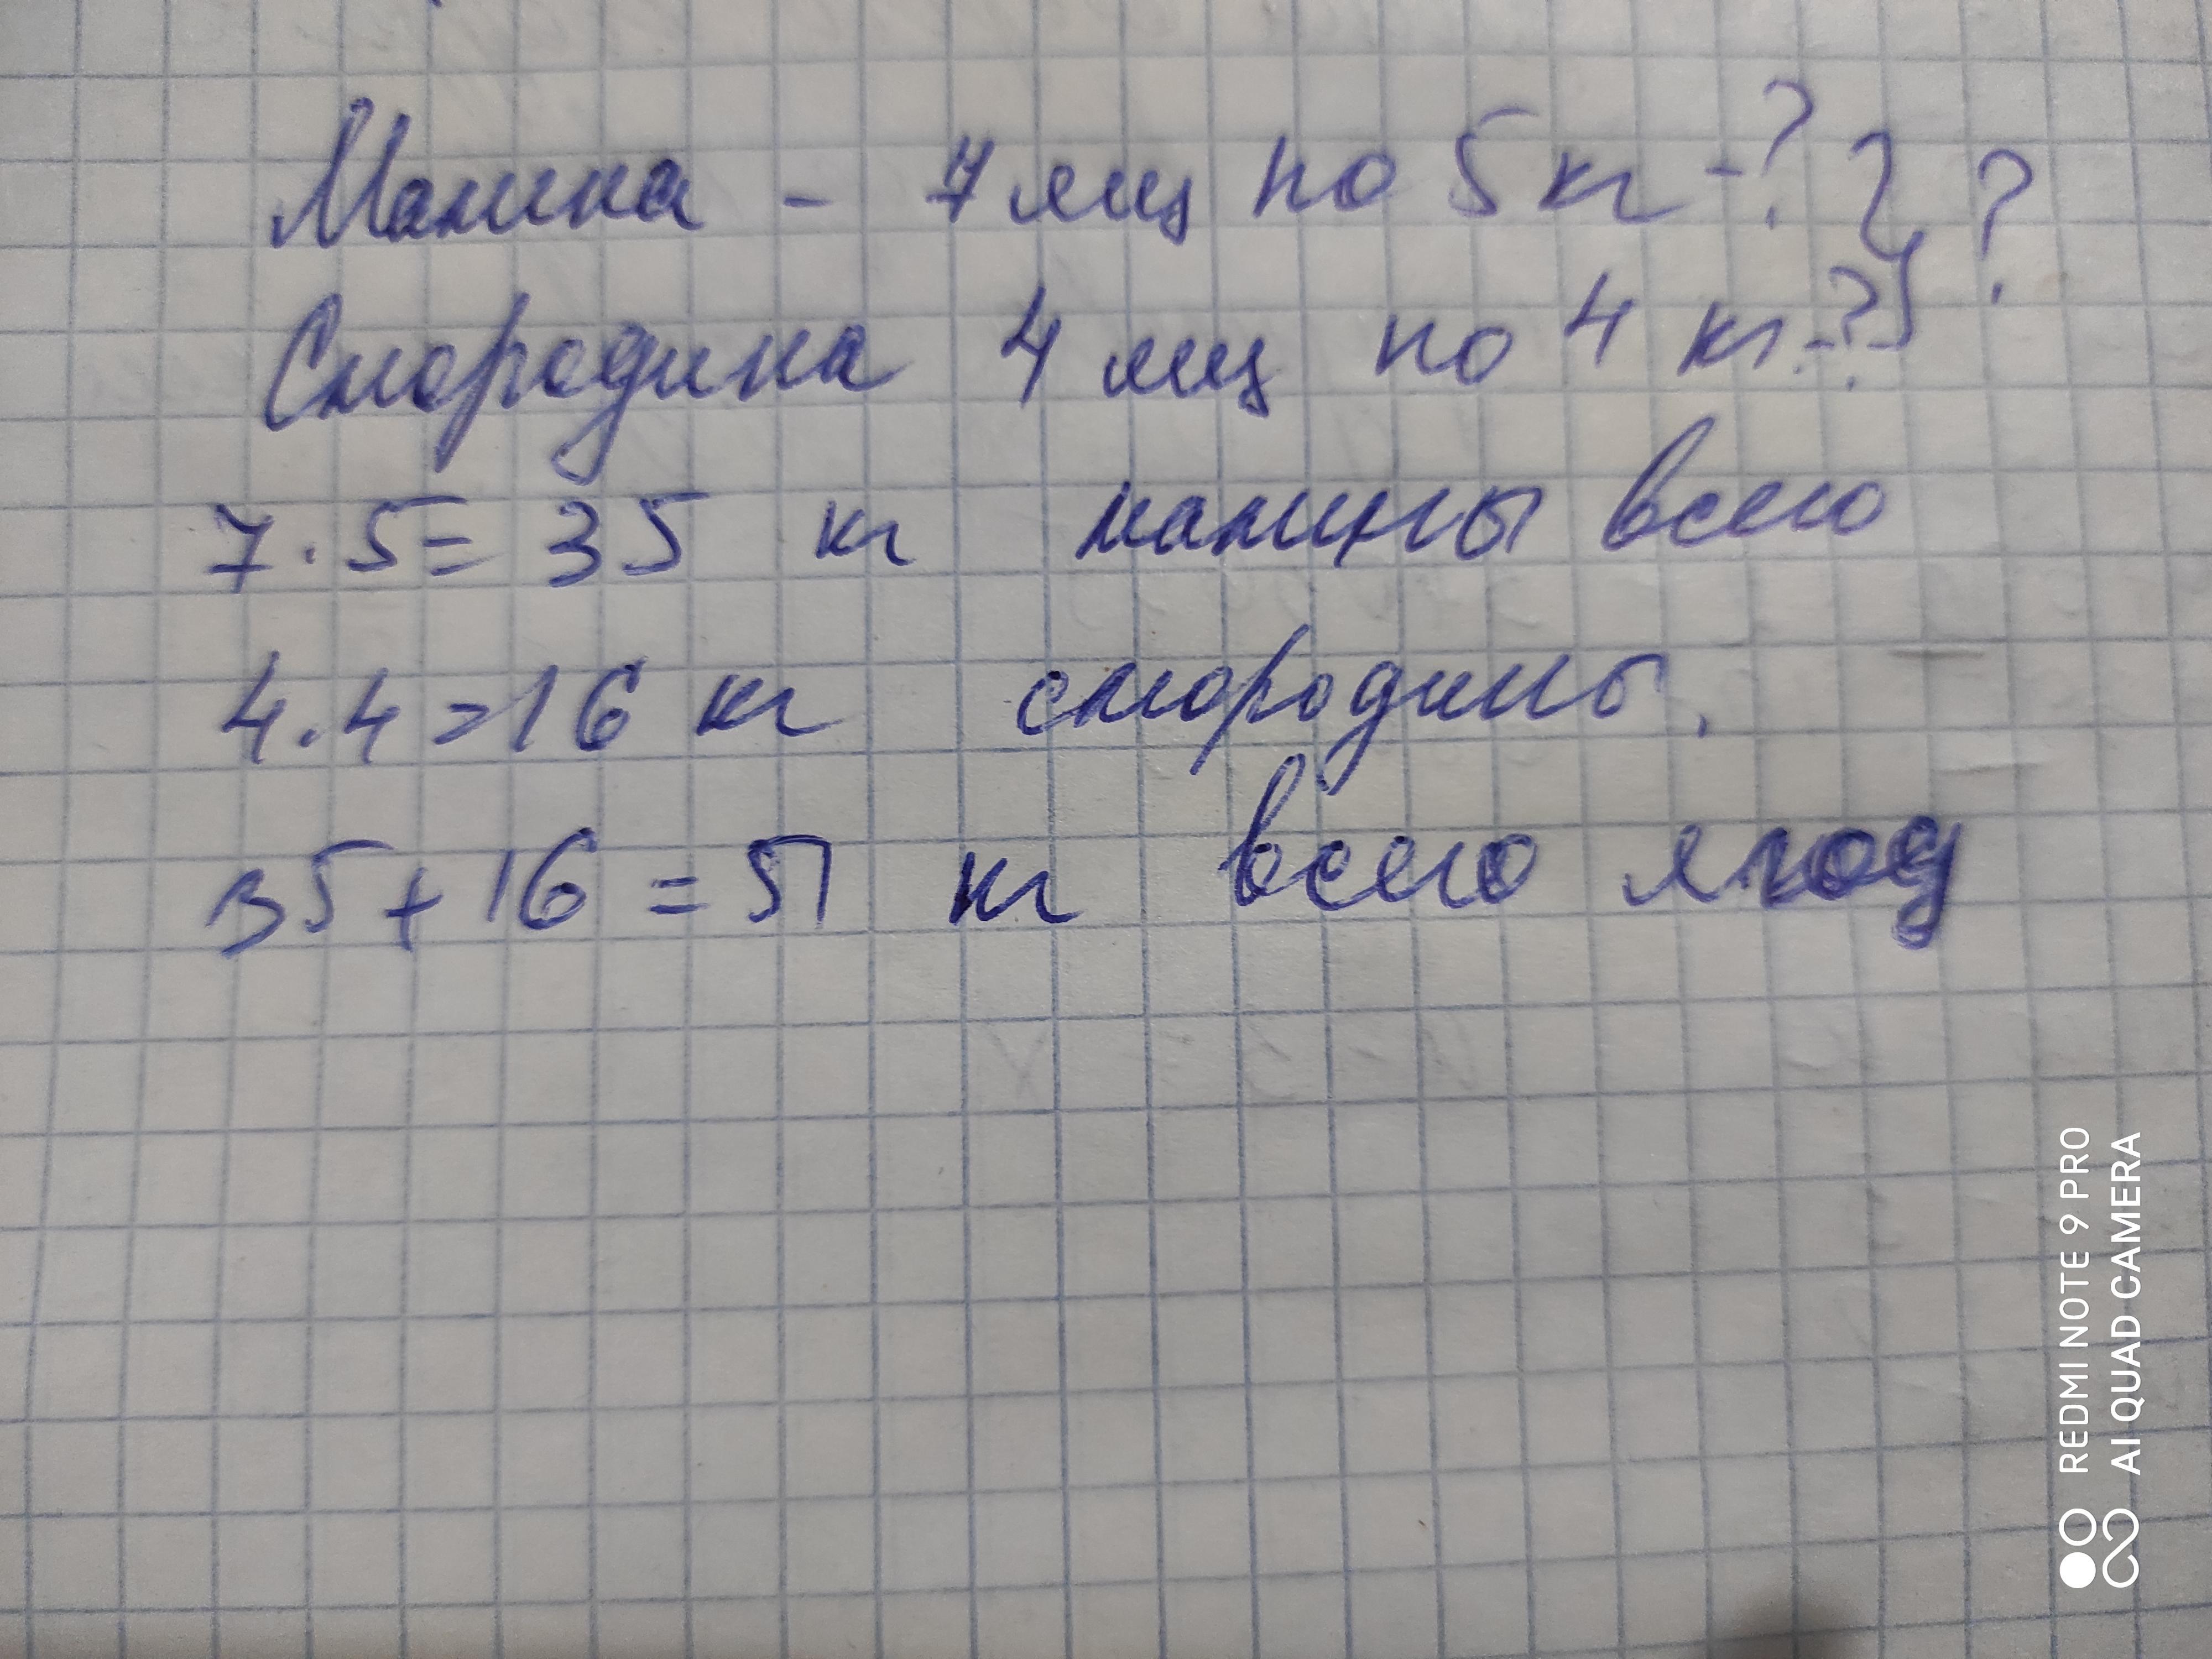 Малина - 7 ящ по 5 кг -? } ?
Смородина 4 ящ по 4 кг -?
7·5= 35 кг малины всего
4·4=16 кг смородины.
35+16 = 51 кг всего ягод
REDMI NOTE 9 PRO
AI QUAD CAMERA